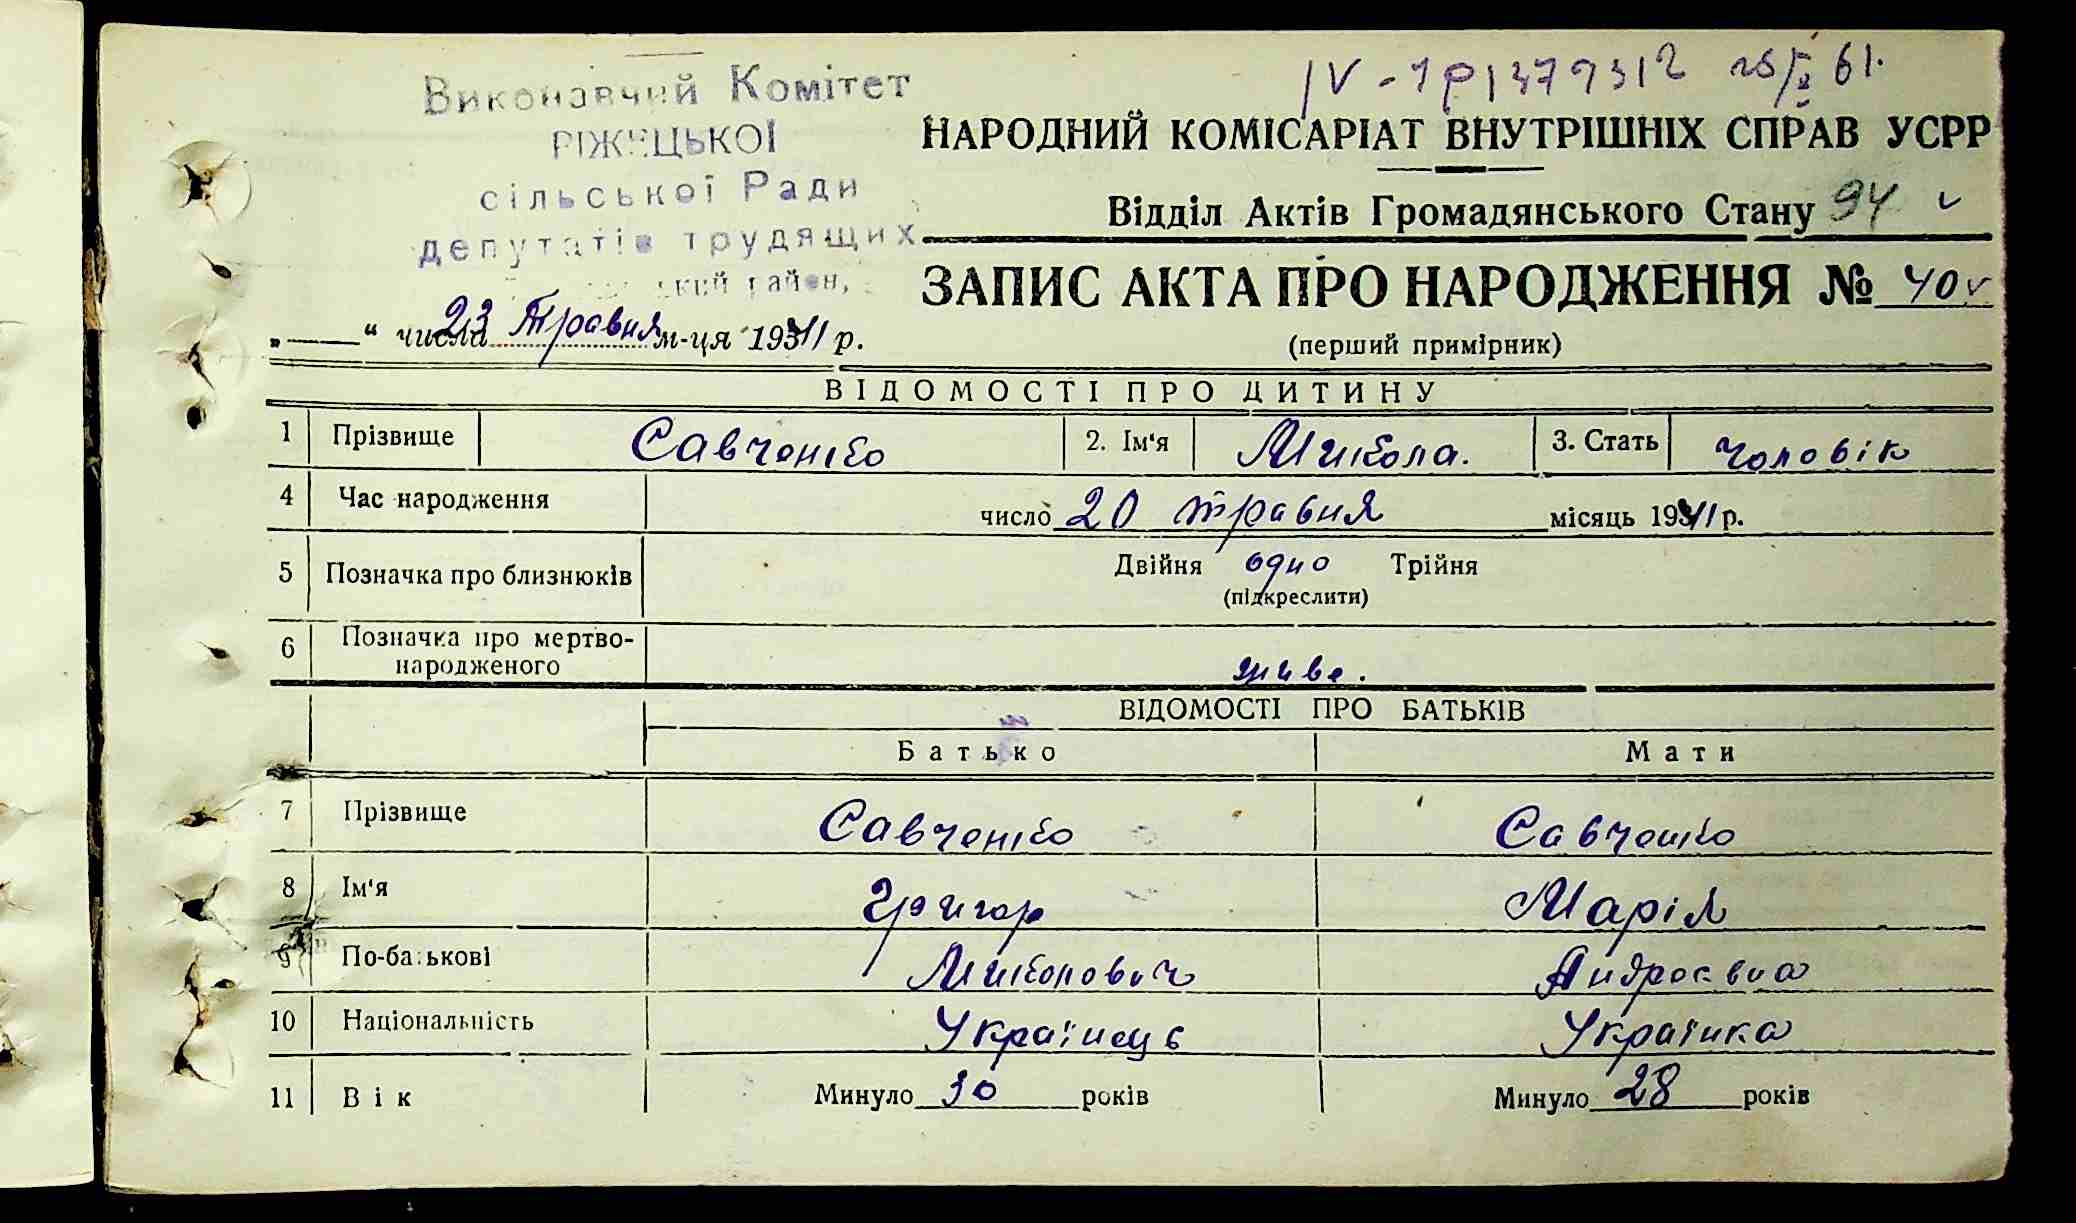 IV-ЧР 1379312 25/X 61.
Виконавчий Комітет
РІЖЕЦЬКОЇ
сільської Ради
депутатів трудящих
район,
НАРОДНИЙ КОМІСАРІАТ ВНУТРІШНІХ СПРАВ УСРР
Відділ Актів Громадянського Стану 94 v
ЗАПИС АКТА ПРО НАРОДЖЕННЯ № 40 v
„ “ числа 23 Травня м-ця 1941 р.
(перший примірник)
ВІДОМОСТІ ПРО ДИТИНУ
1 Прізвище Савченко 2. Ім'я Микола. 3. Стать чоловік
4 Час народження число 20 травня місяць 1941 р.
5 Позначка про близнюків Двійня одно Трійня
(підкреслити)
6 Позначка про мертво-
народженого живе.
ВІДОМОСТІ ПРО БАТЬКІВ
Батько Мати
7 Прізвище Савченко Савченко
8 Ім'я Григор Марія
9 По-батькові Миколович Андреєвна
10 Національність Українець Українка
11 Вік Минуло 30 років Минуло 28 років